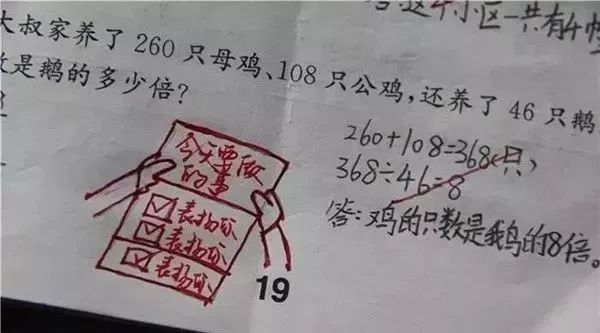 答:这4个小区一共有4幢
大叔家养了 260 只母鸡、108 只公鸡,还养了 46 只鹅
数是鹅的多少倍?
260+108=368(只)
368÷46=8
答:鸡的只数是鹅的8倍。
今天要做
的事
表扬你
表扬你
表扬你
19